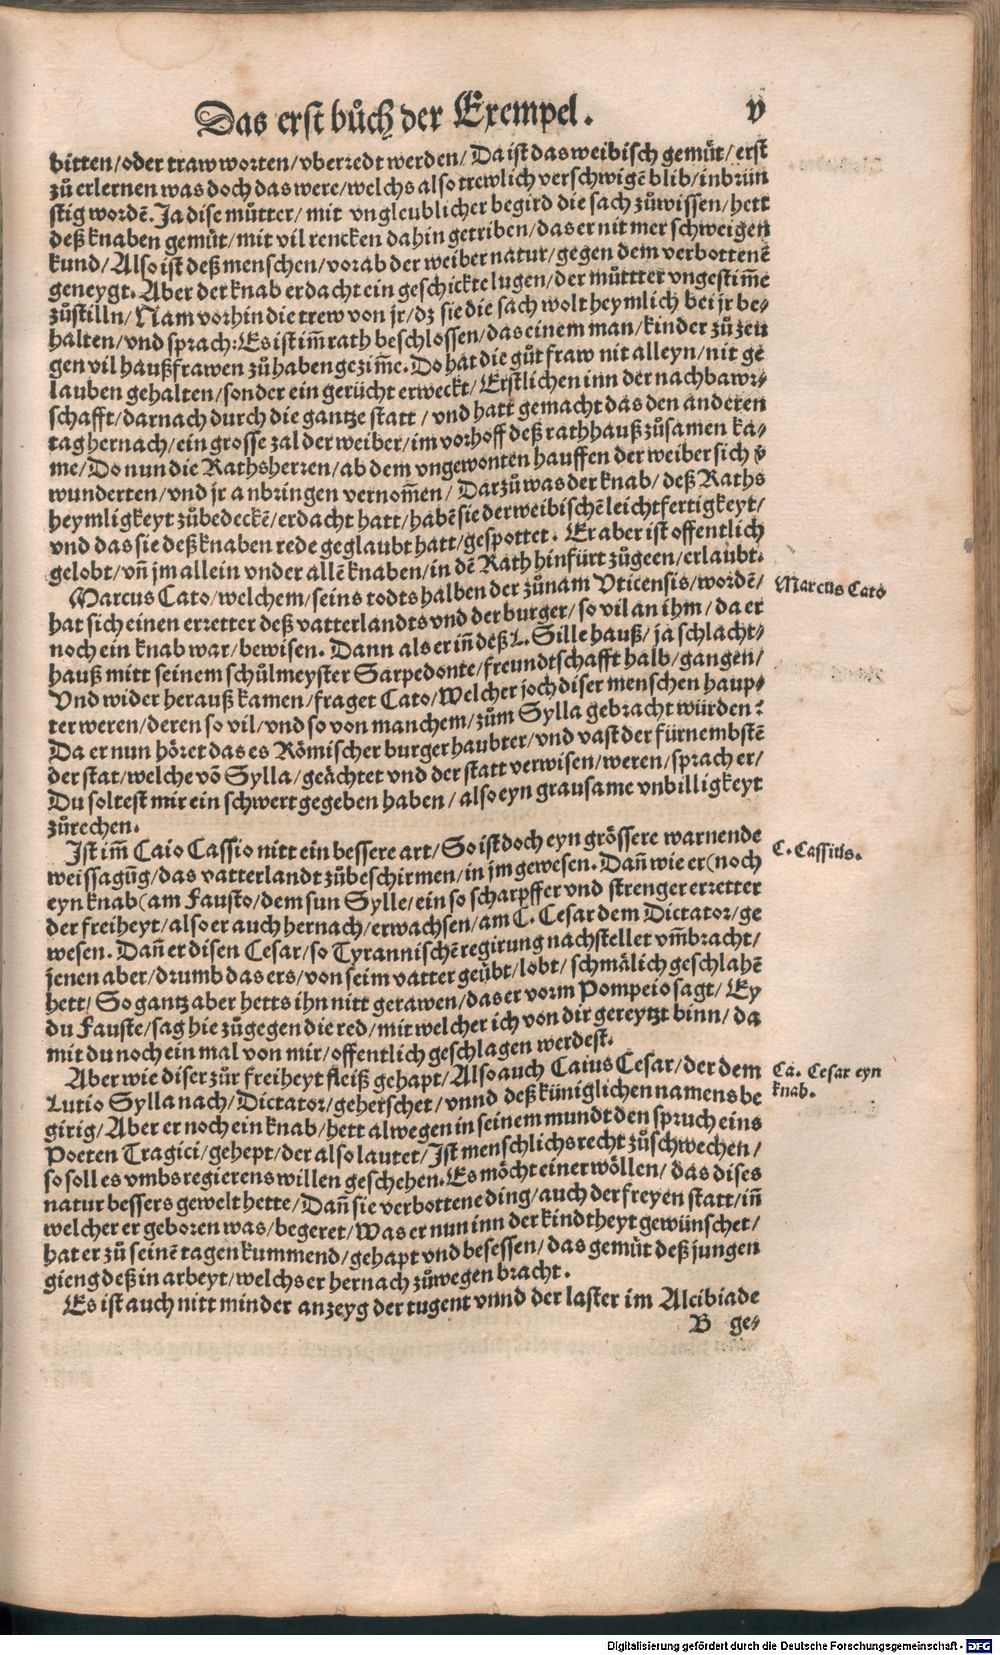 Das erst bůch der Exempel. v
bitten/oder trawworten/vberredt werden/Da ist das weibisch gemüt/erst
zů erlernen was doch das were/welchs also trewlich verschwigē blib/inbrün
stig wordē. Ja dise můtter/mit vngleublicher begird die sach zůwissen/hett
deß knaben gemüt/mit vil rencken dahin getriben/das er nit mer schweigen
kund/Also ist deß menschen/vorab der weiber natur/gegen dem verbottenē
geneygt. Aber der knab erdacht ein geschickte lugen/der můttter vngestim̃e
zůstilln/Nam vorhin die trew von jr/dz sie die sach wolt heymlich bei jr be⸗
halten/vnd sprach: Es ist im̃ rath beschlossen/das einem man/kinder zů zeü
gen vil haußfrawen zů haben gezim̃e. Do hat die gůt fraw nit alleyn/nit ge
lauben gehalten/sonder ein gerücht erweckt/Erstlichen inn der nachbawr⸗
schafft/darnach durch die gantze statt/vnd hatt gemacht das den anderen
tag hernach/ein grosse zal der weiber/im vorhoff deß rathhauß zůsamen ka⸗
me/Do nun die Rathsherren/ab dem vngewonten hauffen der weiber sich v̄
wunderten/vnd jr anbringen vernom̃en/Darzů was der knab/deß Raths
heymligkeyt zůbedeckē/erdacht hatt/habē sie der weibischē leichtfertigkeyt/
vnd das sie deß knaben rede geglaubt hatt/gespottet. Er aber ist offentlich
gelobt/vn̄ jm allein vnder allē knaben/in dē Rath hinfürt zůgeen/erlaubt.
Marcus Cato/welchem/seins todts halben der zůnam Vticensis/wordē/
Marcus Cato
hat sich einen erretter deß vatterlandts vnd der burger/so vil an ihm/da er
noch ein knab war/bewisen. Dann als er in̄ deß L. Sille hauß/ja schlacht⸗
hauß mitt seinem schůlmeyster Sarpedonte/freundtschafft halb/gangen/
Vnd wider herauß kamen/fraget Cato/Welcher joch diser menschen haup⸗
ter weren/deren so vil/vnd so von manchem/zům Sylla gebracht würden?
Da er nun höret das es Römischer burger haubter/vnd vast der fürnembstē
der stat/welche võ Sylla/geächtet vnd der statt verwisen/weren/sprach er/
Du soltest mir ein schwert gegeben haben/also eyn grausame vnbilligkeyt
zůrechen.
Ist im̃ Caio Cassio nitt ein bessere art/So ist doch eyn grössere warnende
C. Cassius.
weissagūg/das vatterlandt zůbeschirmen/in jm gewesen. Dan̄ wie er (noch
eyn knab (am Fausto/dem sun Sylle/ein so scharpffer vnd strenger erretter
der freiheyt/also er auch hernach/erwachsen/am C. Cesar dem Dictator/ge
wesen. Dan̄ er disen Cesar/so Tyrannischē regirung nachstellet vm̃bracht/
jenen aber/drumb das ers/von seim vatter geübt/lobt/schmälich geschlahē
hett/So gantz aber hetts ihn nitt gerawen/das er vorm Pompeio sagt/Ey
du Fauste/sag hie zůgegen die red/mit welcher ich von dir gereytzt binn/da
mit du noch ein mal von mir/offentlich geschlagen werdest.
Aber wie diser zůr freiheyt fleiß gehapt/Also auch Caius Cesar/der dem
Ca. Cesar eyn
knab.
Lutio Sylla nach/Dictator/geherschet/vnnd deß küniglichen namens be
girig/Aber er noch ein knab/hett alwegen in seinem mundt den spruch eins
Poeten Tragici/gehept/der also lautet/Ist menschlichs recht zůschwechen/
so soll es vmbs regierens willen geschehen. Es möcht einer wöllen/das dises
natur bessers gewelt hette/Dan̄ sie verbottene ding/auch der freyen statt/in̄
welcher er geboren was/begeret/Was er nun inn der kindtheyt gewünschet/
hat er zů seinē tagen kummend/gehapt vnd besessen/das gemüt deß jungen
gieng deß in arbeyt/welchs er hernach zůwegen bracht.
Es ist auch nitt minder anzeyg der tugent vnnd der laster im Alcibiade
B ge⸗
Digitalisierung gefördert durch die Deutsche Forschungsgemeinschaft - DFG